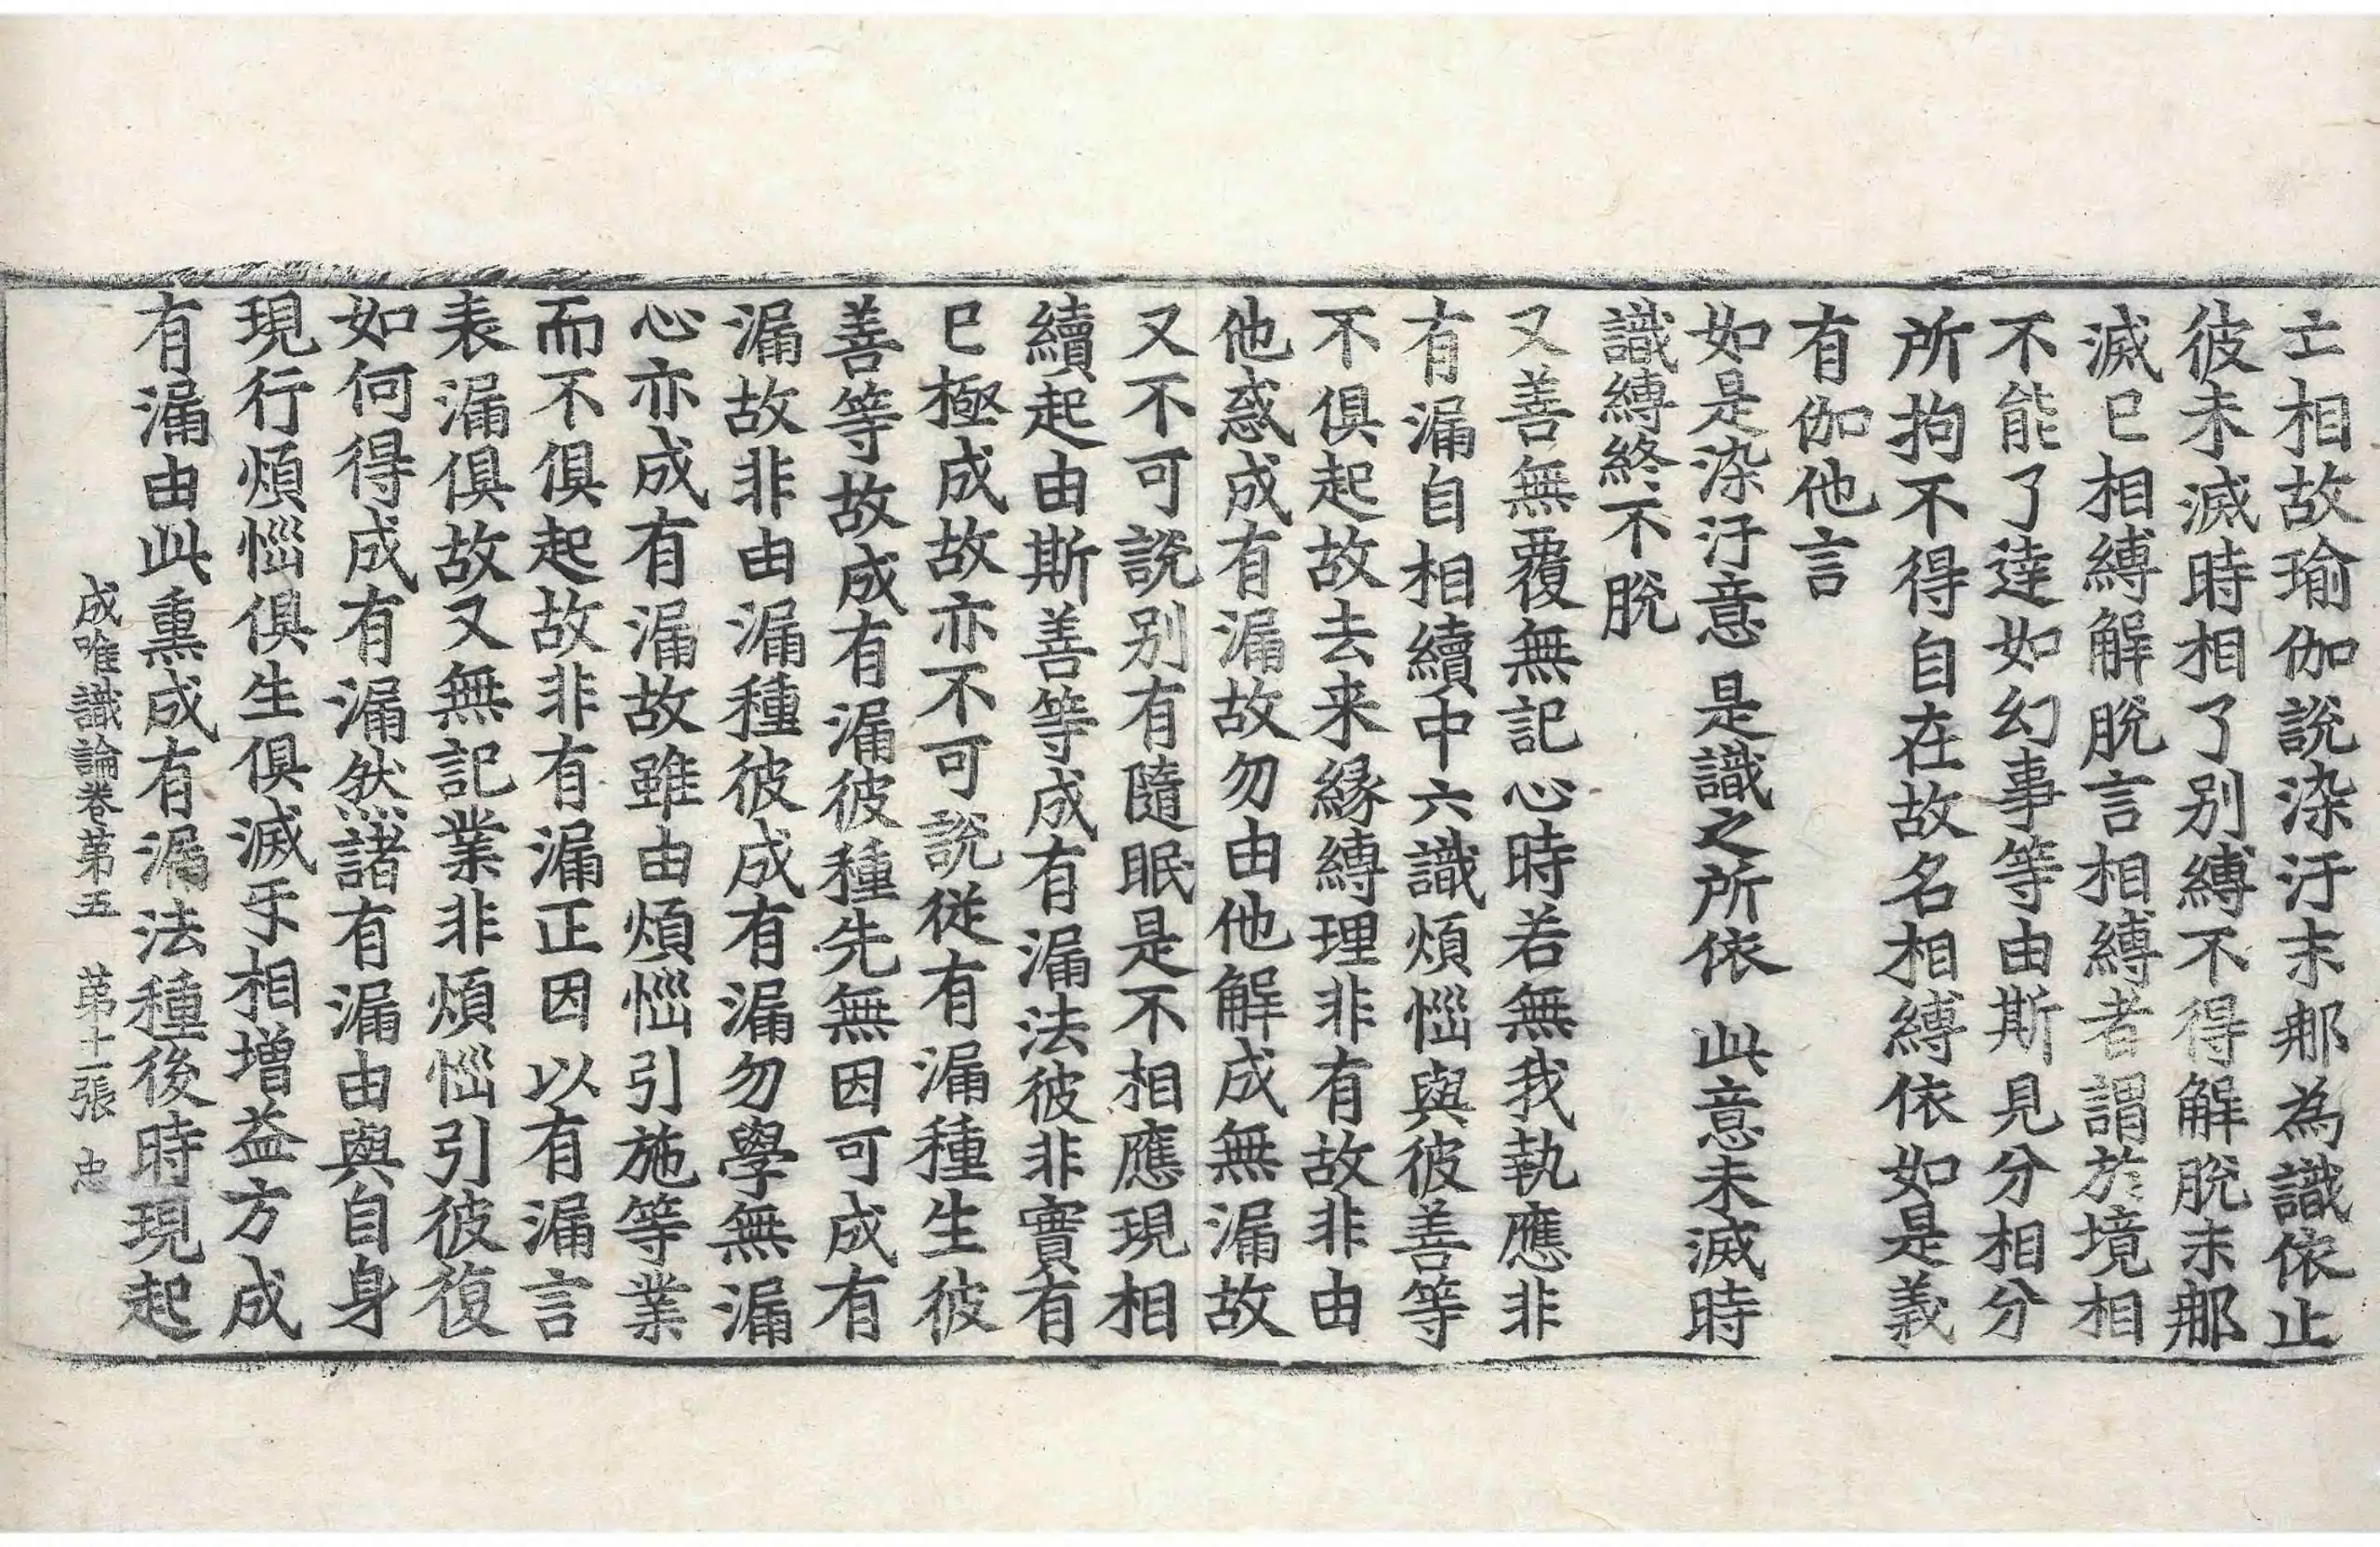 亡相故瑜伽說染汙末那為識依止
彼未滅時相了別縛不得解脫末那
滅已相縛解脫言相縛者謂於境相
不能了達如幻事等由斯見分相分
所拘不得自在故名相縛依如是義
有伽他言
如是染汙意 是識之所依 此意未滅時
識縛終不脫
又善無覆無記心時若無我執應非
有漏自相續中六識煩惱與彼善等
不俱起故去来緣縛理非有故非由
他惑成有漏故勿由他解成無漏故
又不可說別有隨眠是不相應現相
續起由斯善等成有漏法彼非實有
已極成故亦不可說從有漏種生彼
善等故成有漏彼種先無因可成有
漏故非由漏種彼成有漏勿學無漏
心亦成有漏故雖由煩惱引施等業
而不俱起故非有漏正因以有漏言
表漏俱故又無記業非煩惱引彼復
如何得成有漏然諸有漏由與自身
現行煩惱俱生俱滅互相增益方成
有漏由此熏成有漏法種後時現起
成唯識論卷第五 第十二張 忠